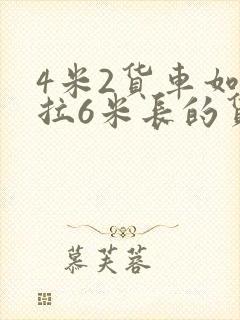 4米2貨車如
拉6米長的貨
慕芙蓉